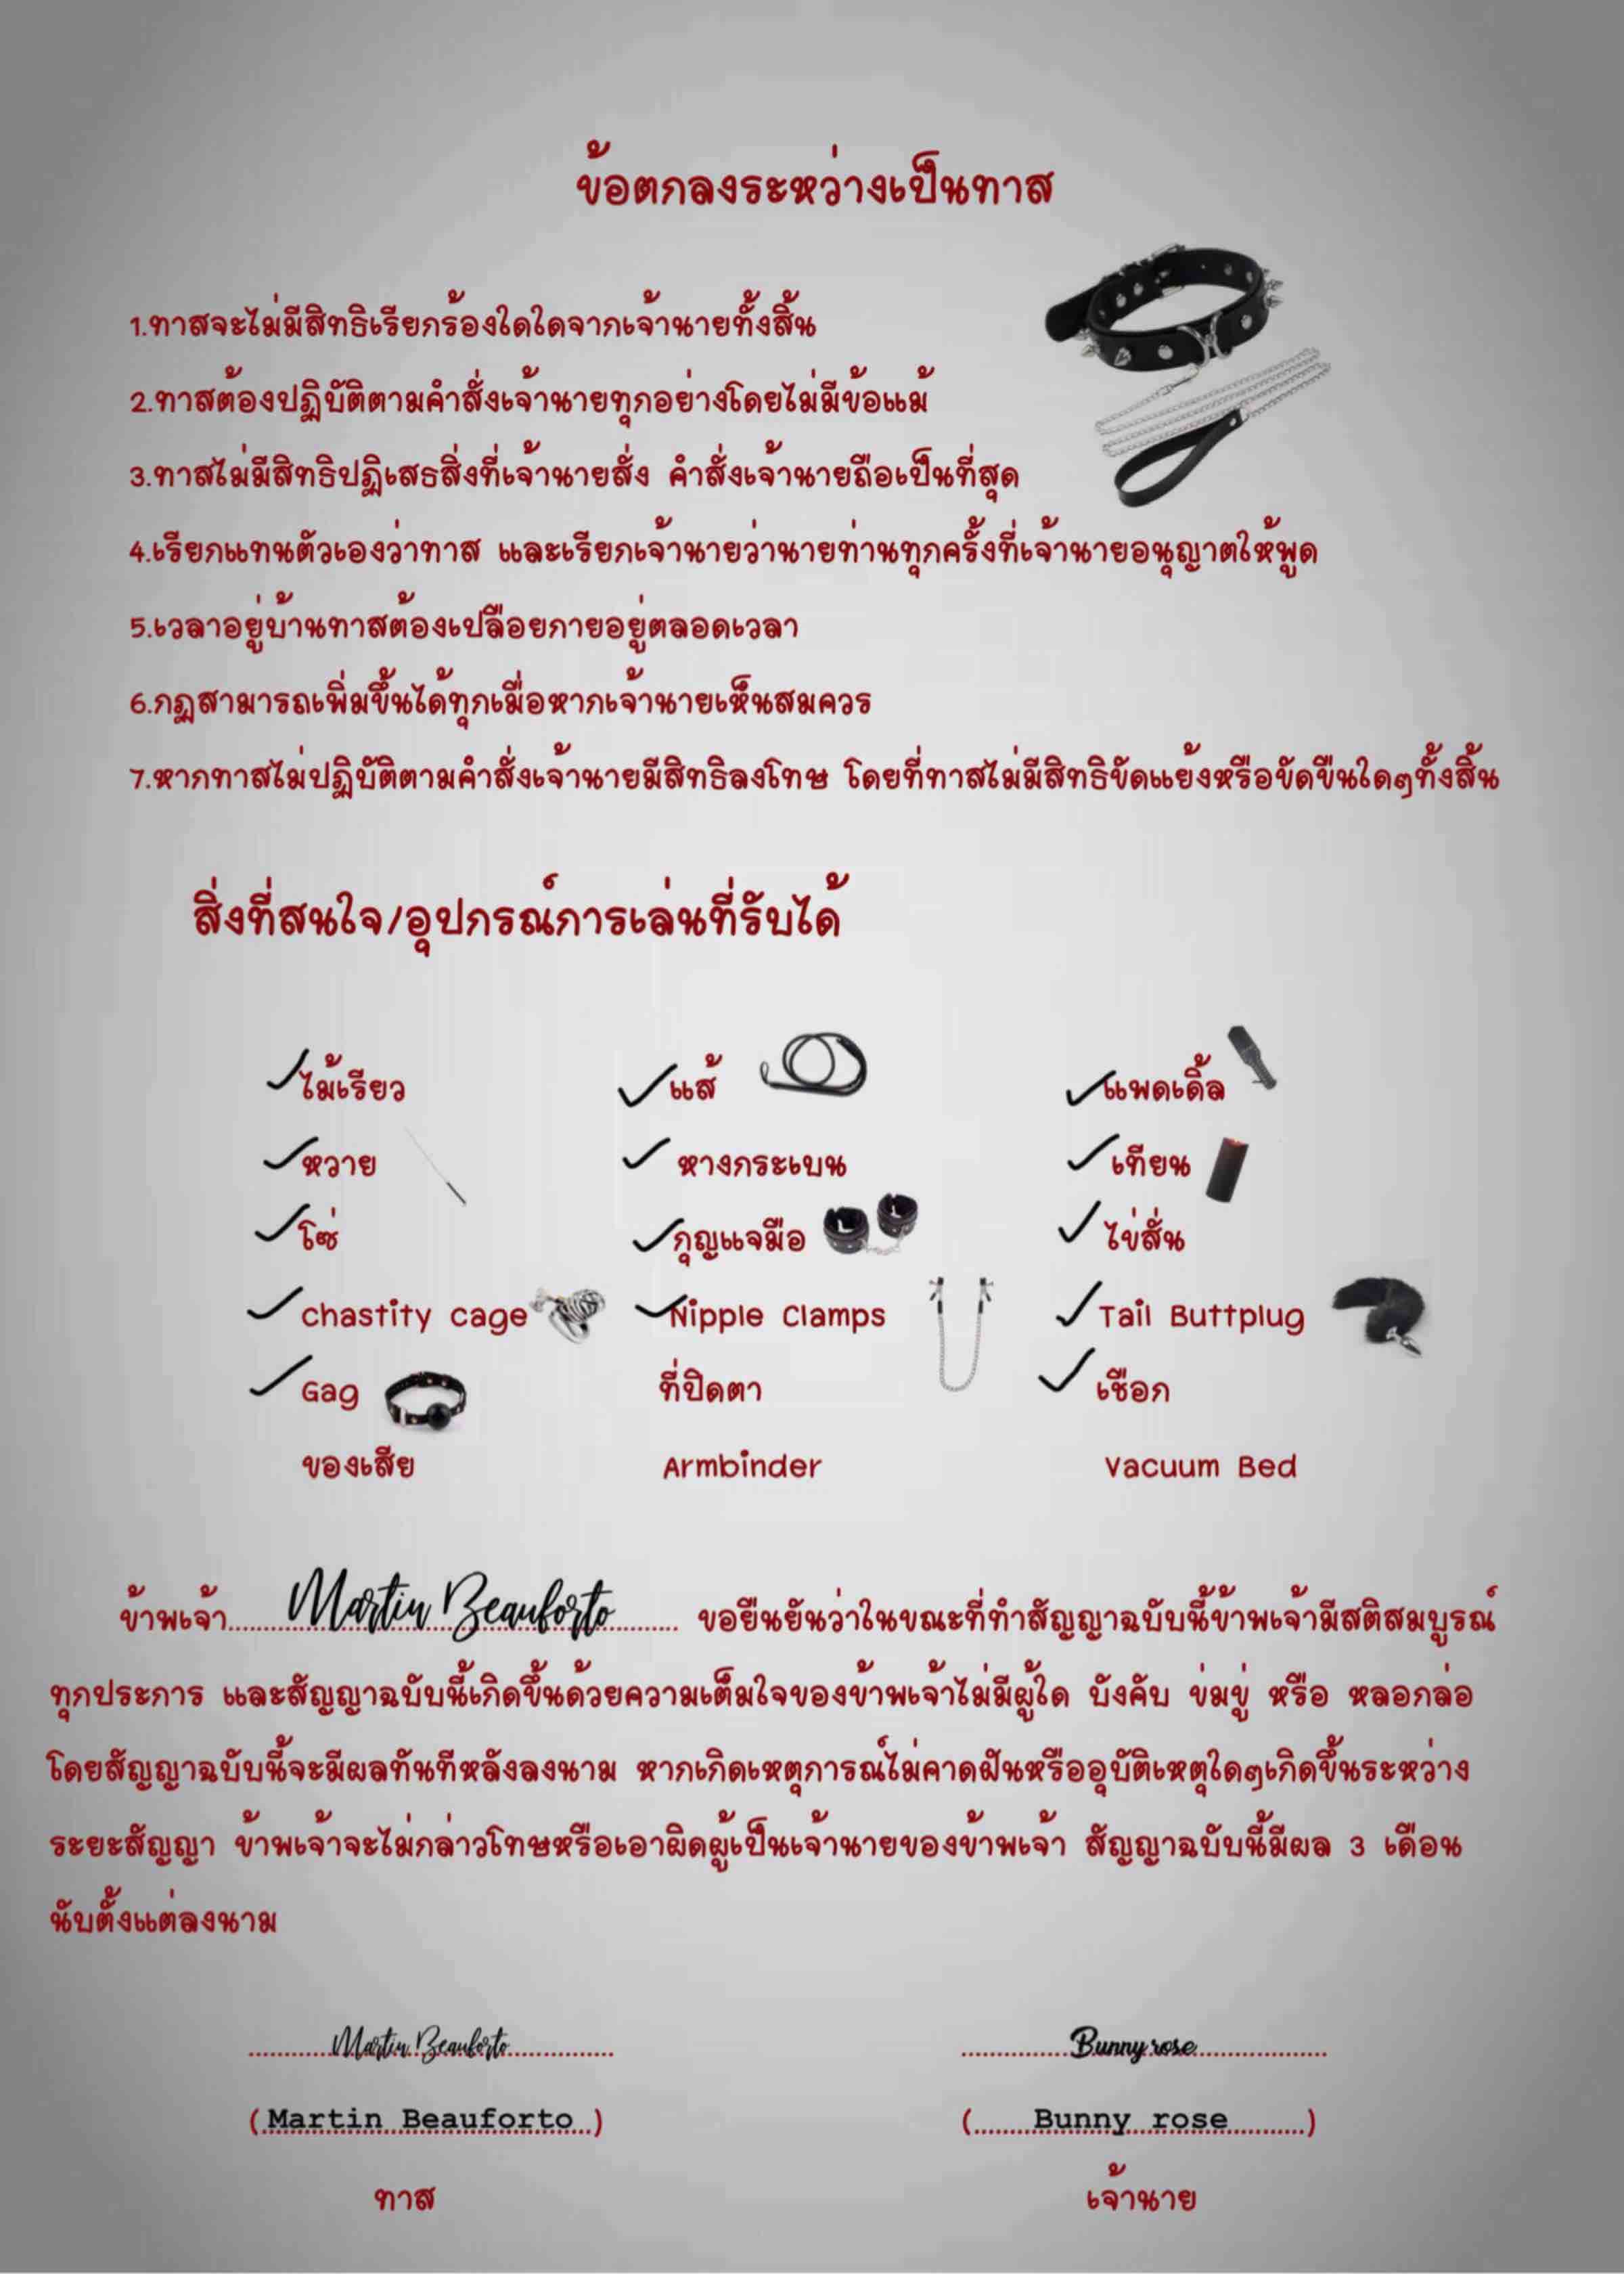 ข้อตกลงระหว่างเป็นทาส
1.ทาสจะไม่มีสิทธิเรียกร้องใดใดจากเจ้านายทั้งสิ้น
2.ทาสต้องปฏิบัติตามคำสั่งเจ้านายทุกอย่างโดยไม่มีข้อแม้
3.ทาสไม่มีสิทธิปฏิเสธสิ่งที่เจ้านายสั่ง คำสั่งเจ้านายถือเป็นที่สุด
4.เรียกแทนตัวเองว่าทาส และเรียกเจ้านายว่านายท่านทุกครั้งที่เจ้านายอนุญาตให้พูด
5.เวลาอยู่บ้านทาสต้องเปลือยกายอยู่ตลอดเวลา
6.กฏสามารถเพิ่มขึ้นได้ทุกเมื่อหากเจ้านายเห็นสมควร
7.หากทาสไม่ปฏิบัติตามคำสั่งเจ้านายมีสิทธิลงโทษ โดยที่ทาสไม่มีสิทธิขัดแย้งหรือขัดขืนใดๆทั้งสิ้น
สิ่งที่สนใจ/อุปกรณ์การเล่นที่รับได้
ไม้เรียว แส้ แพดเดิ้ล
หวาย หางกระเบน เทียน
โซ่ กุญแจมือ ไข่สั่น
chastity cage Nipple Clamps Tail Buttplug
Gag ที่ปิดตา เชือก
ของเสีย Armbinder Vacuum Bed
ข้าพเจ้า Martin Beauforto ขอยืนยันว่าในขณะที่ทำสัญญาฉบับนี้ข้าพเจ้ามีสติสมบูรณ์
ทุกประการ และสัญญาฉบับนี้เกิดขึ้นด้วยความเต็มใจของข้าพเจ้าไม่มีผู้ใด บังคับ ข่มขู่ หรือ หลอกล่อ
โดยสัญญาฉบับนี้จะมีผลทันทีหลังลงนาม หากเกิดเหตุการณ์ไม่คาดฝันหรืออุบัติเหตุใดๆเกิดขึ้นระหว่าง
ระยะสัญญา ข้าพเจ้าจะไม่กล่าวโทษหรือเอาผิดผู้เป็นเจ้านายของข้าพเจ้า สัญญาฉบับนี้มีผล 3 เดือน
นับตั้งแต่ลงนาม
Martin Beauforto Bunny rose
(Martin Beauforto) (Bunny rose)
ทาส เจ้านาย